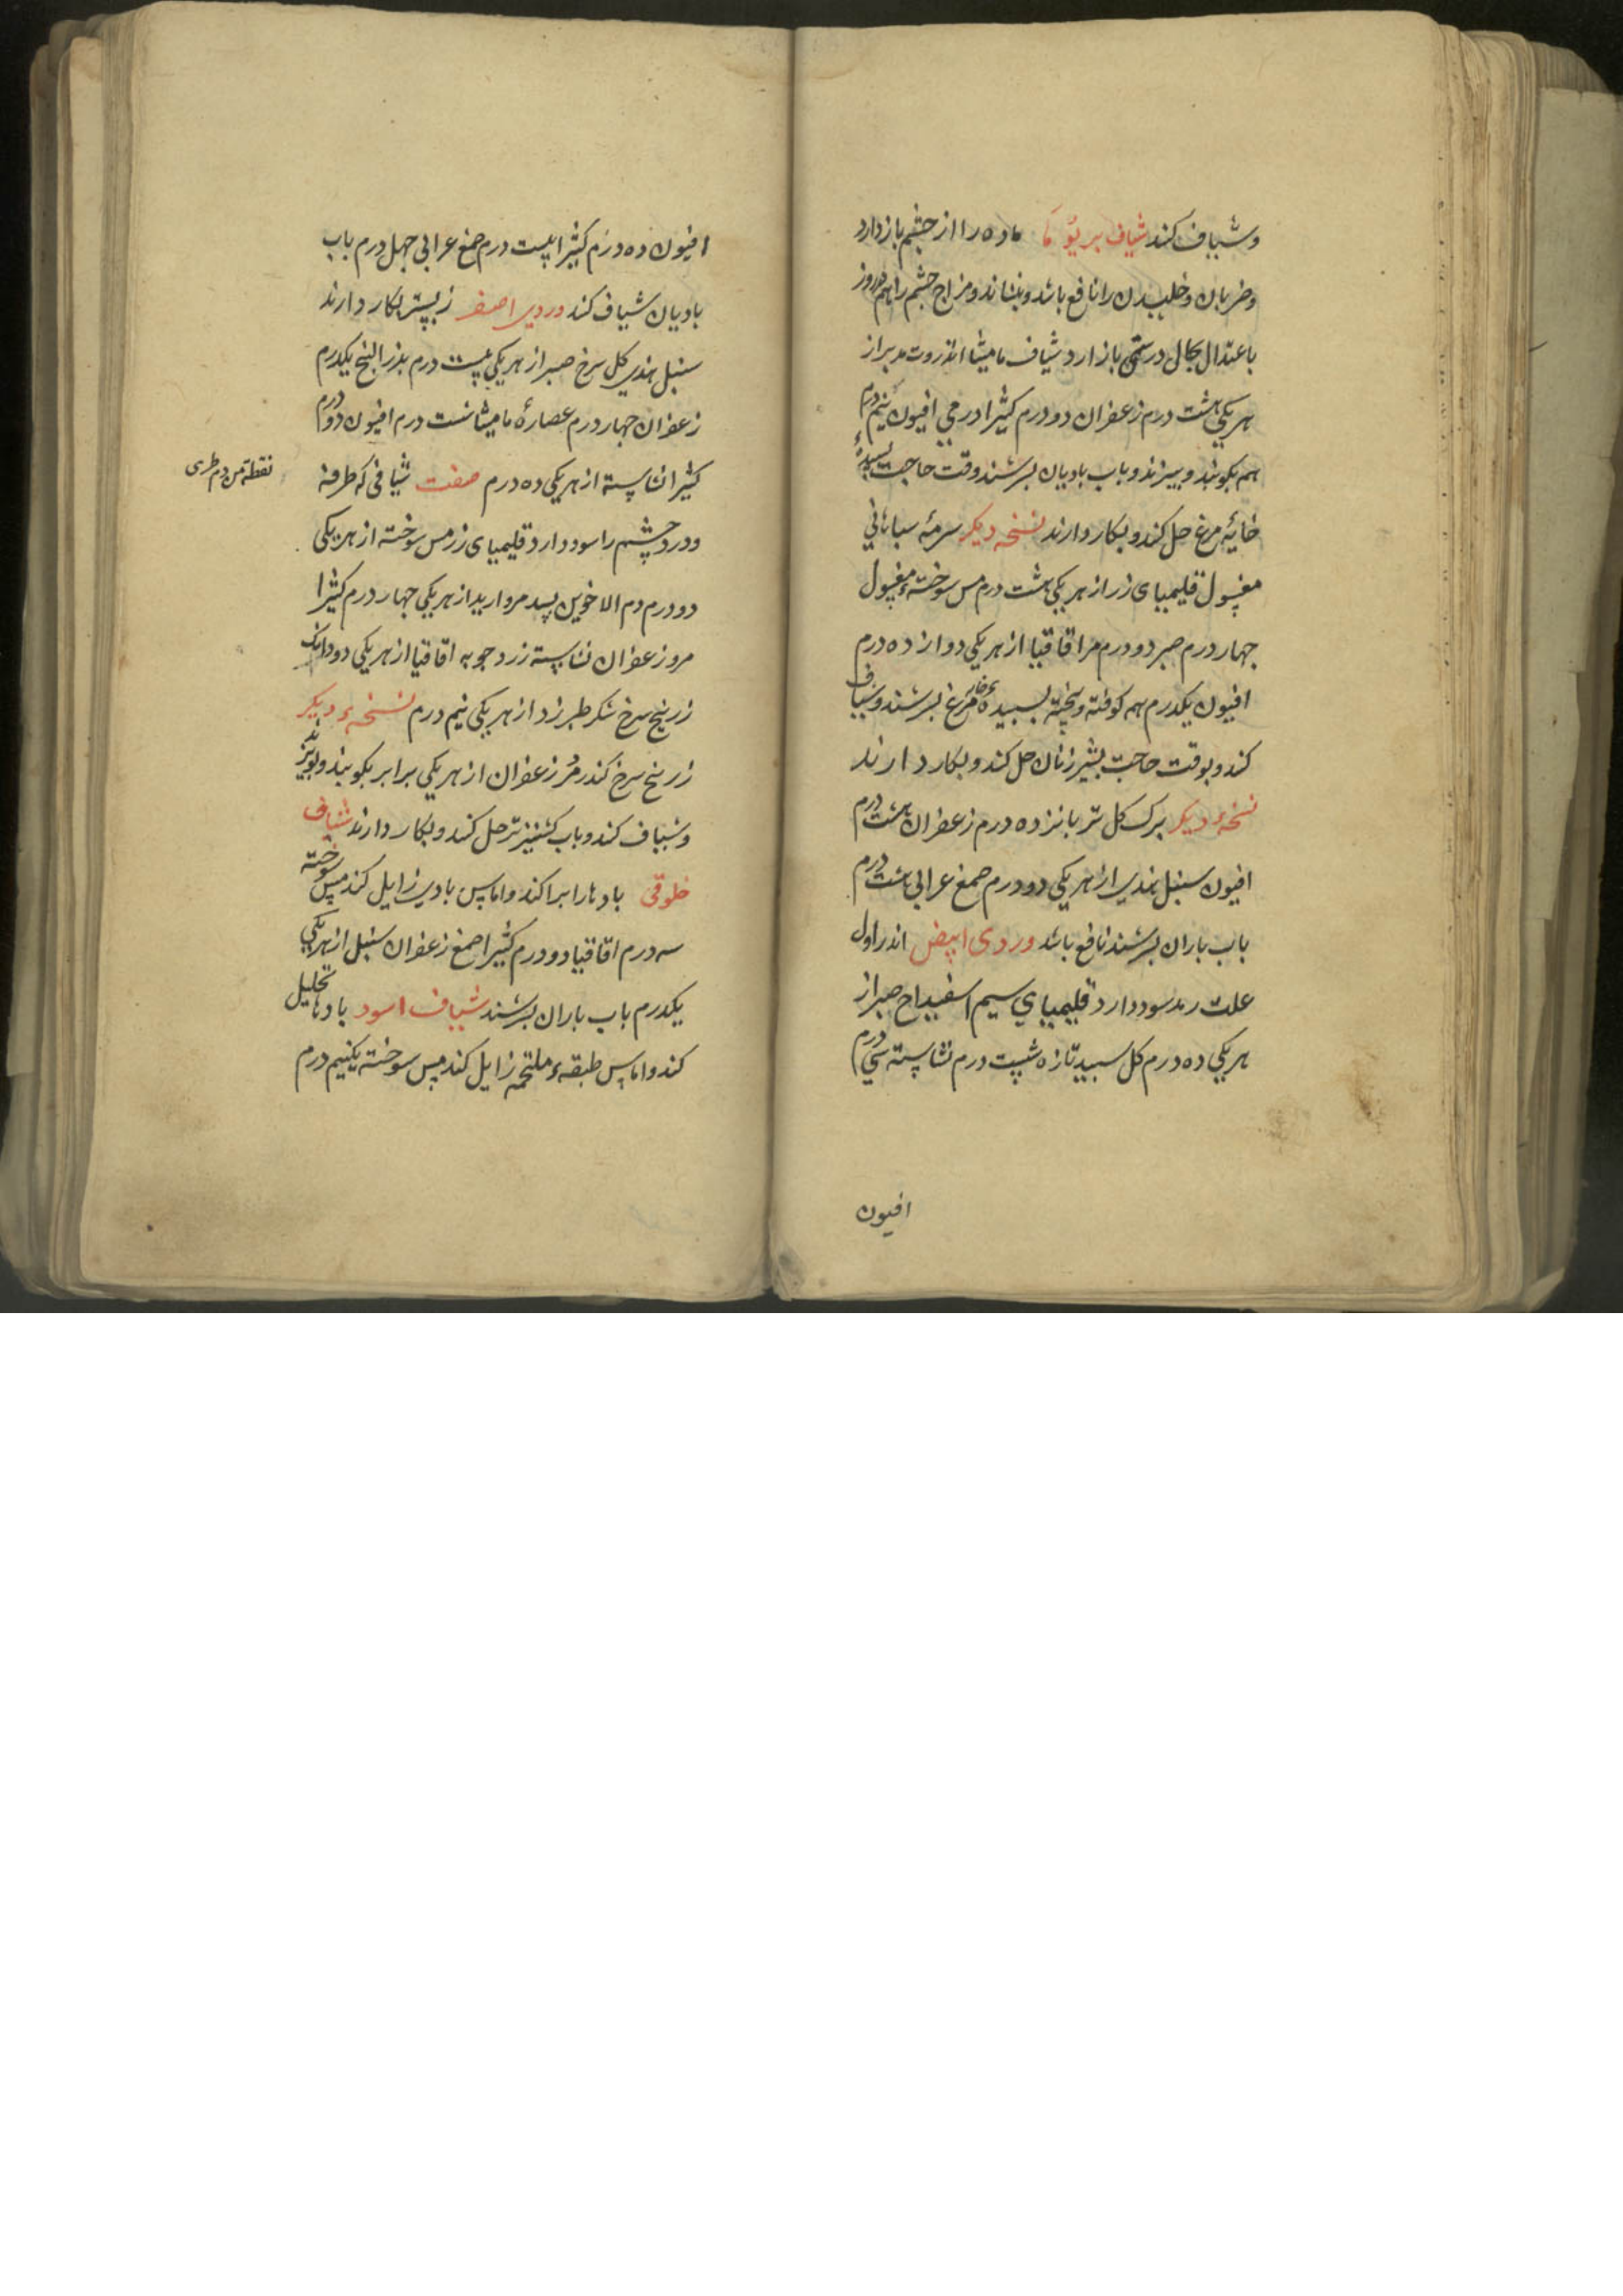 وشیاف کنند شیاف بریؤ ما ماده را از چشم باز دارد
وضربان وخلیدن را نافع باشد وبنشاند ومزاج چشم را هم در روز
باعتدال بحال درستی باز ارد شیاف مامیثا انزروت مدبر از
هر یکی هشت درم زعفران دو درم کثیرا درمی افیون نیم درم
هم بکوبند وبیزند وباب بادیان بسرشند وقت حاجت بسپیدهٔ
خایٔه مرغ حل کند وبکار دارند نسخه دیکر سرمهٔ سباهانی
مغسول قلیمیای زر از هر یکی هشت درم مس سوختهٔ مغسول
جهار درم صبر دو درم مر اقاقیا از هر یکی دوازده درم
افیون یکدرم همه کوفته وبیخته بسبیدهٔ خایهٔ مرغ بسرشند وشیاف
کند وبوقت حاجت بشیر زنان حل کند وبکار دارند
نسخهٔ دیکر برک کل تر بانزده درم زعفران هشت درم
افیون سنبل هندی از هر یکی دو درم صمغ عرابی هشت درم
باب باران بسرشند نافع باشد وردی ابیض اندر اول
علت رمد سود دارد قلیمیای سیم اسفیداج صبر از
هر یکی ده درم کل سبید تازه شیت درم نشاسته سی درم
افیون
افیون ده درم کثیرا بیست درم صمغ عرابی جهل درم باب
بادیان شیاف کند وردی اصفر زبیشتر بکار دارند
سنبل هندی کل سرخ صبر از هر یکی بیست درم بذر البنج یکدرم
زعفران جهار درم عصارهٔ مامیثا شست درم افیون دو درم
کثیرا نشاسته از هر یکی ده درم صفت شیافی که طرفه
نقطة من دم طری
ودرد چشم را سود دارد قلیمیای زر مس سوخته از هر یکی
دو درم دم الاخوین بسد مروارید از هر یکی جهار درم کثیرا
مر وزعفران نشاسته زرد جوبه اقاقیا از هر یکی دو دانک
زرنیخ سرخ شکر طبرزد از هر یکی نیم درم نسخهٔ دیکر
زرنیخ سرخ کندر مُر زعفران از هر یکی برابر بکوبند وبویزند
وشیاف کند وباب کشنیز تر حل کند وبکار دارند شیاف
خلوقی بادها را براکند واماس بادی زایل کند مس سوخته
سه درم اقاقیا دو درم کثیرا صمغ زعفران سنبل از هر یکی
یکدرم باب باران بسرشند شیاف اسود بادها تحلیل
کند واماس طبقهٔ ملتحمه زایل کند مس سوخته یکنیم درم